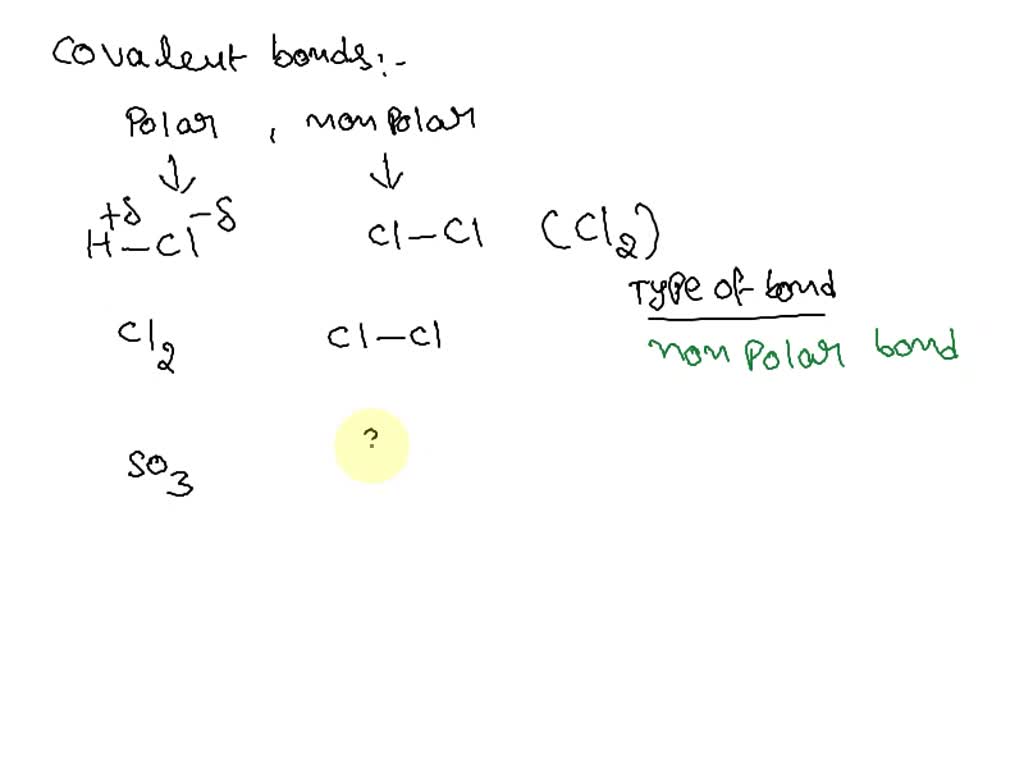 Covalent bonds:-
Polar , nonpolar
↓ ↓
+δ -δ
H-Cl Cl-Cl (Cl2)
Type of bond
Cl2 Cl-Cl
non polar bond
?
SO3